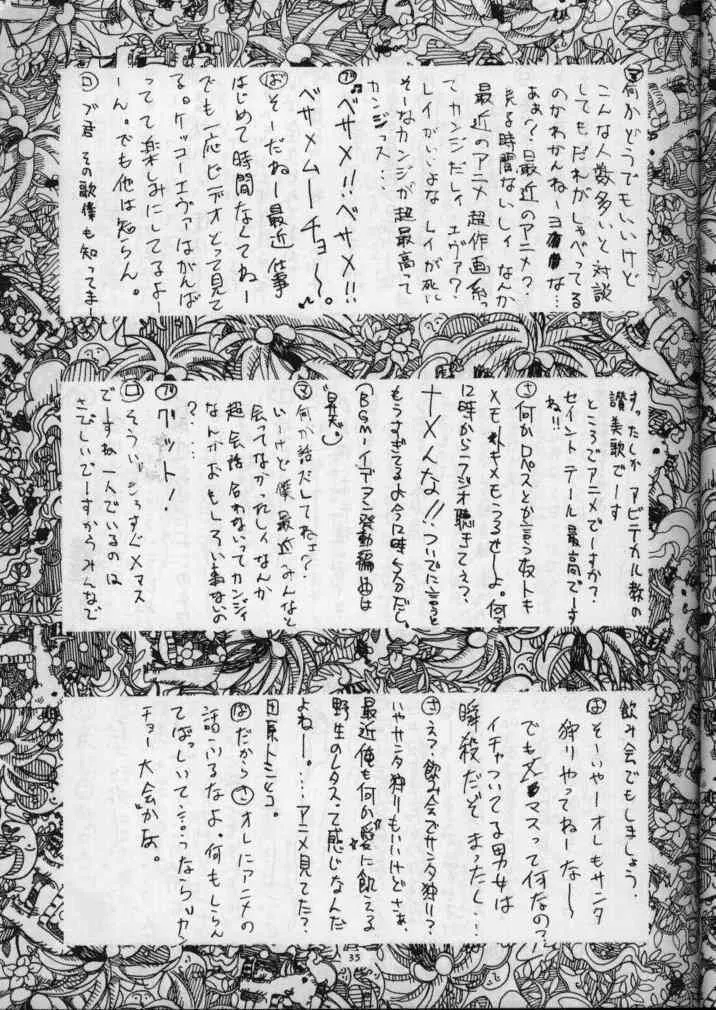 マ何かどうでもいいけど
こんな人数多いと対談
してもだれがしゃべってる
のかわかんねーヨな…
あぁ?最近のアニメ?
見る時間ないしィなんか
最近のアニメ超作画系っ
てカンジだしィエヴァ?
レイがいいよなレイが死に
そーなカンジが超最高て
カンジっス…
ブ♫ベサメ!!ベサメ!!
ベサメムーチョ〜。♪
ばそーだねー最近仕事
はじめて時間なくてねー
でも一応ビデオとって見て
る。ケッコーエヴァはがんば
ってて楽しみにしてるよー
ーん。でも他は知らん。
ロブ君その歌僕も知ってまー
すったしかアビテカル教の
讃美歌でーす
ところでアニメでーすか?
セイントテール最高でーす
ね!!
さ何かロペスとか言う夜トキ
メモ トキメモうるせーよ。何?
12時からラジオ聴きてぇ?
ナメんな!!ついでに言うと
もうすぎてるよ今12時5分だし。
(BGM-イデオン発動編曲は
昇天)
マ何か話だしてねェ?
いーけど僕最近みんなと
会ってなかったしィなんか
超会話合わないってカンジィ
なんかおもしろい事ないの
?…
ブグット!
ロそういえばもうすぐXマス
でーすね一人でいるのは
さびしいでーすからみんなで
飲み会でもしましょう.
ばそーいやーオレもサンタ
狩りやってねーな〜
でもXマスって何なの?
イチャついてる男女は
瞬殺だぞまったく…
さえ?飲み会でサンタ狩り?
いやサンタ狩りもいいけどさぁ、
最近俺も何か愛に飢える
野生のレタスって感じなんだ
よねー。…アニメ見てた?
田原トシヒコ。
ばだからさオレにアニメの
話ふるなよ。何もしらん
てばっしいて言うならリカ
チョー大会かな。
35